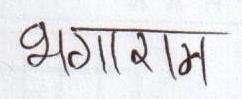 भगाराम